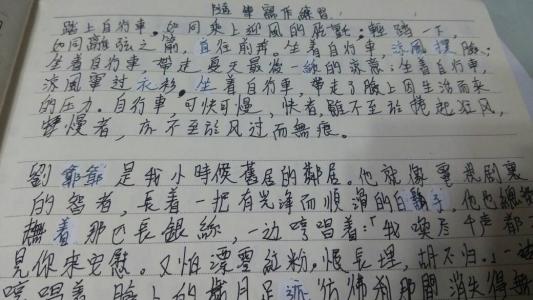 隨筆寫作練習
踏上自行車，如同乘上迎风的，輕踏一下，
如同離弦之箭，直往前奔。坐着自行車，涼风撲臉；
坐着自行車，带走夏天最後一絲的涼意；坐着自行車，
涼风穿过衣衫。坐着自行車，带走了臉上因生活而来
的压力。自行車可快可慢，快者，雖不至於捲起狂风，
慢者，亦不至於风过而無痕。
劉爺爺是我小時候舊居的鄰居。他就像電視剧裏
的智者，長着一把有光泽而順滑的白鬍子，他也總愛
撫着那巴長銀絲，一边哼唱着：「我喚左千声都
見你来安慰。又怕漂零紅粉，恨長埋，胡不归。」一边
哼唱着，臉上的歲月足迹彷彿刹那間消失得無